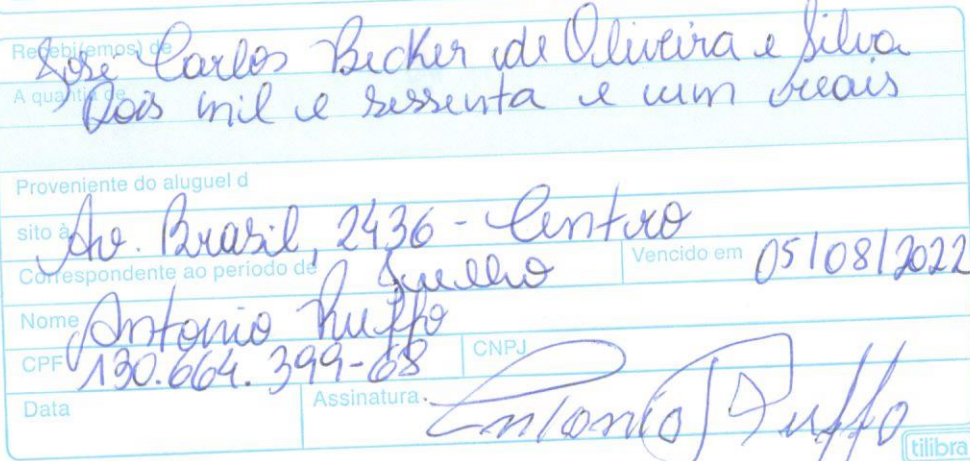 Recebi(emos) de José Carlos Becker de Oliveira e Silva
A quantia de Dois mil e sessenta e um reais
Proveniente do aluguel d
sito à Av. Brasil, 2436 - Centro
Correspondente ao período de Juelho Vencido em 05/08/2022
Nome Antonio Ruffo
CPF 130.664.399-68 CNPJ
Data Assinatura Antonio Ruffo
tilibra